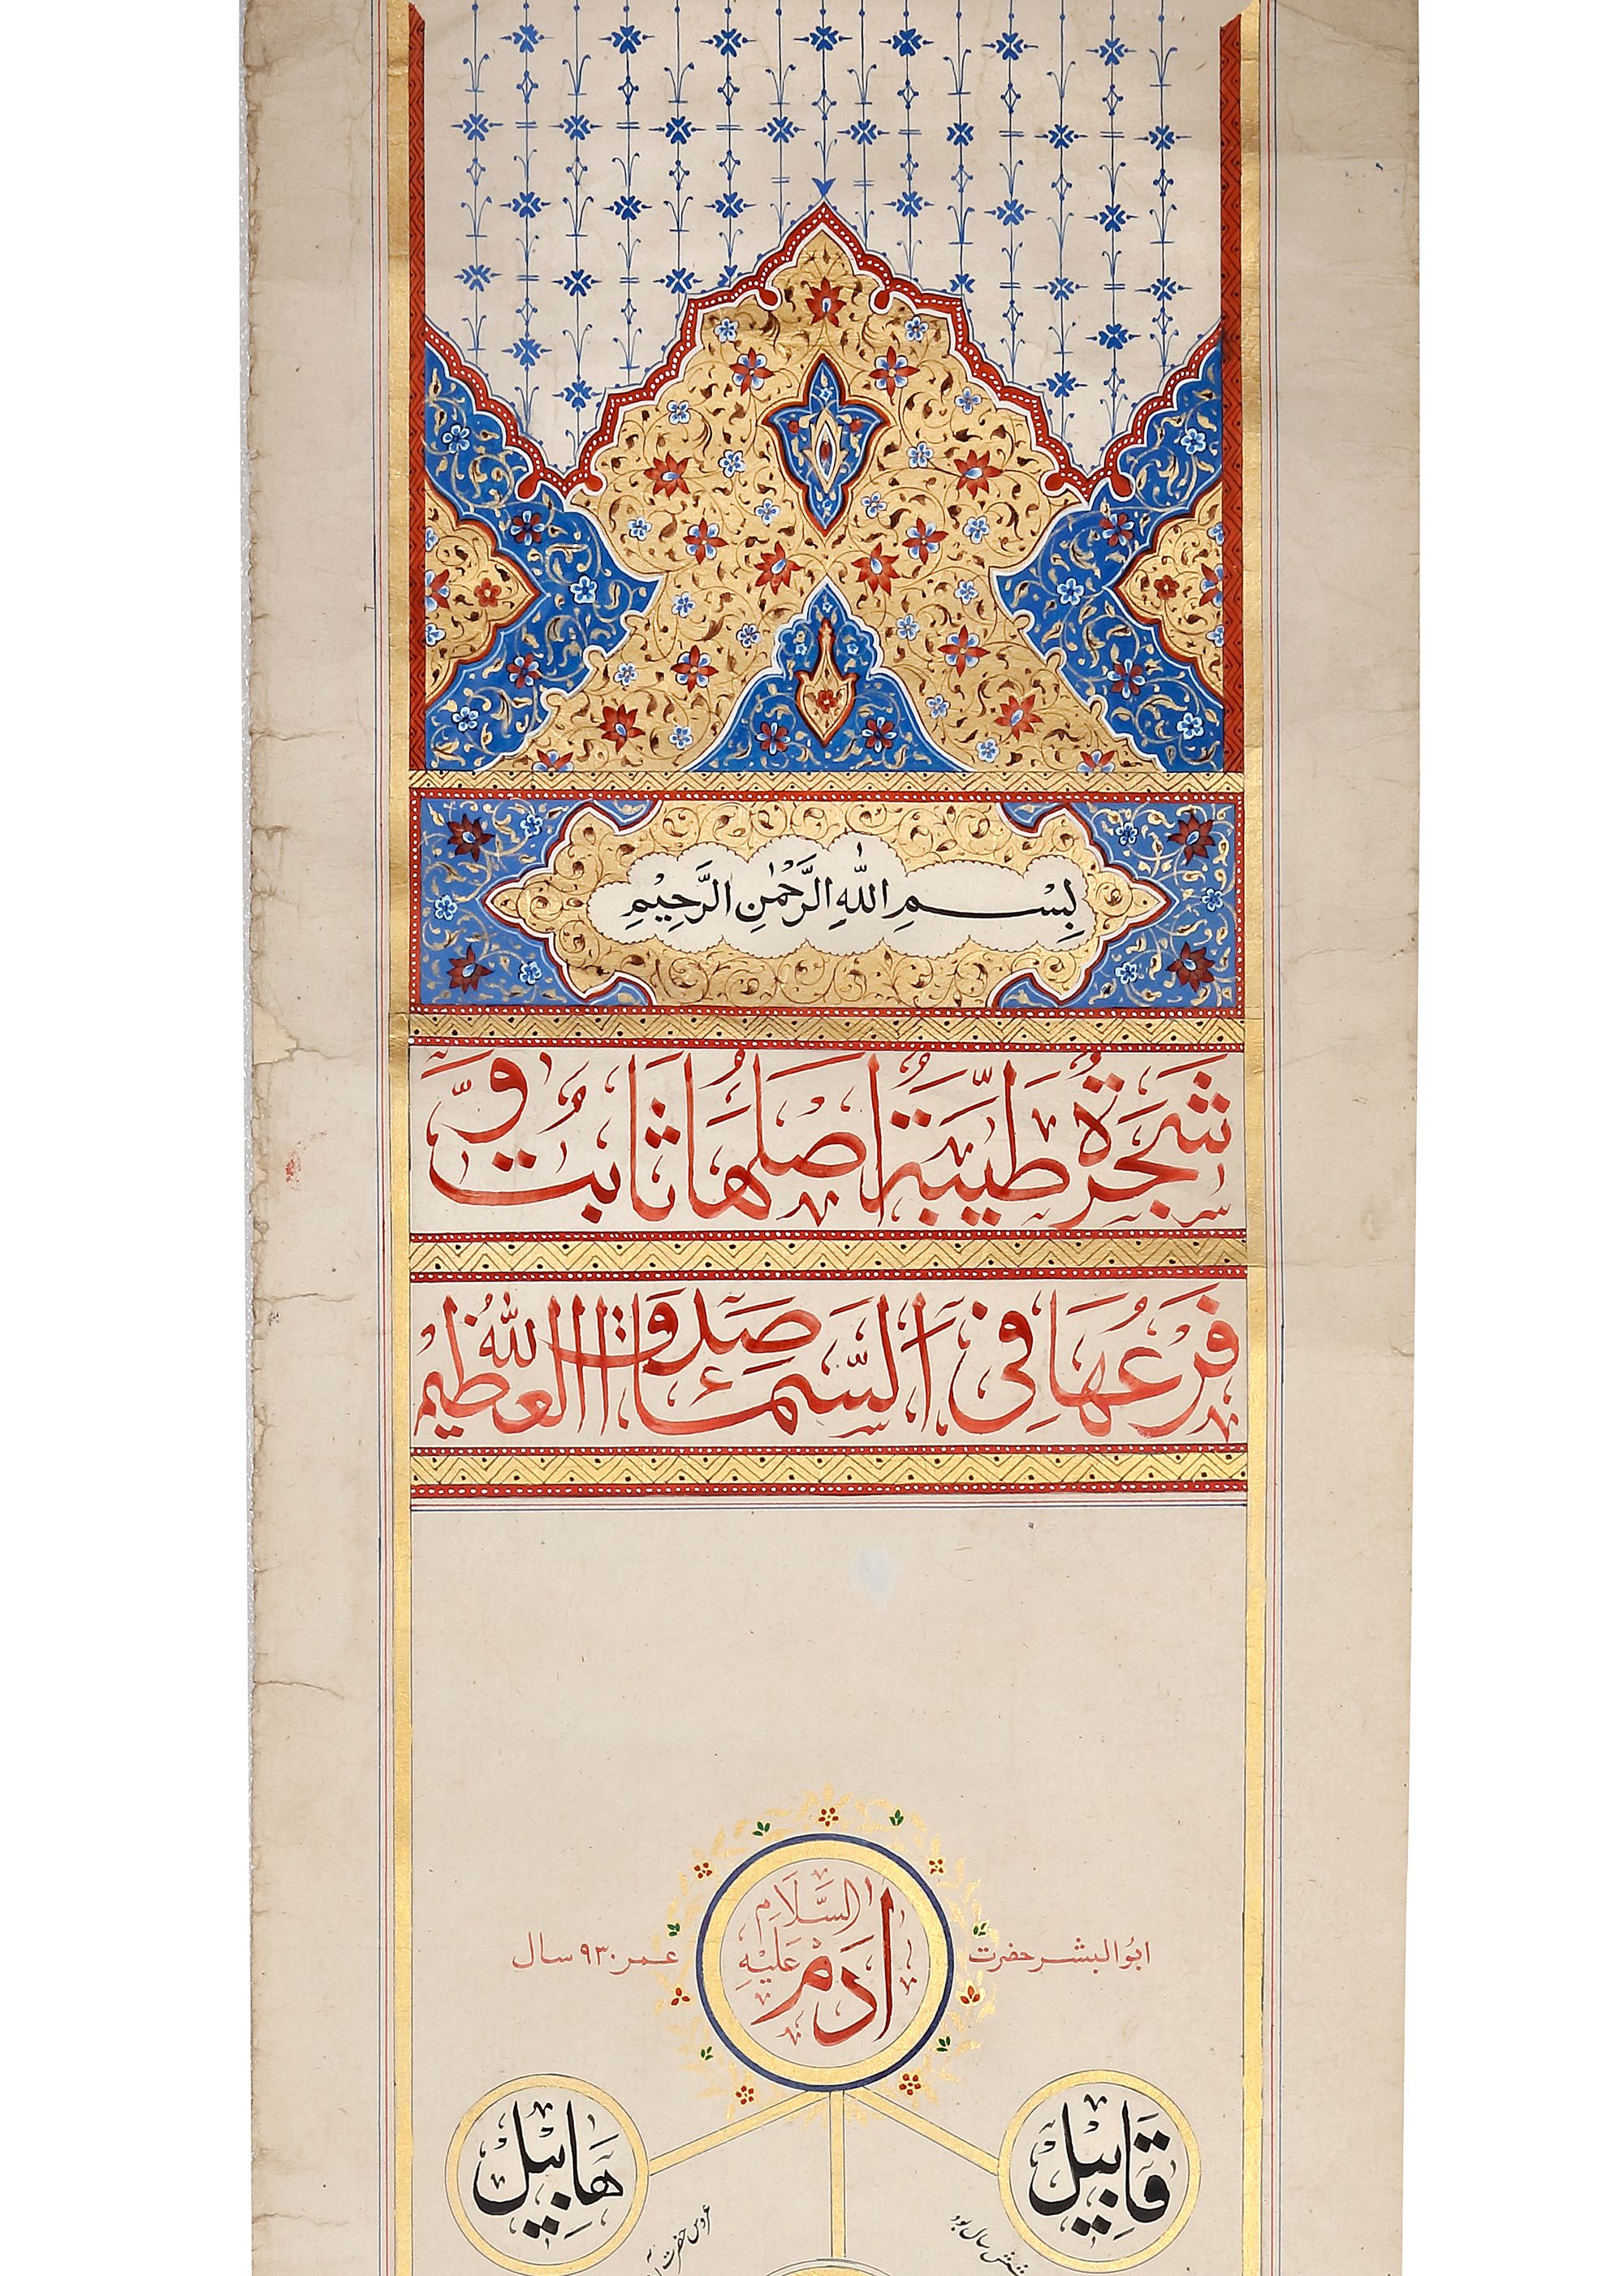 بِسْمِ اللهِ الرَّحْمٰنِ الرَّحِيْمِ
شَجَرَةٌ طَيِّبَةٌ اَصْلُهَا ثَابِتٌ وَّ
فَرْعُهَا فِي السَّمَاءِ صَدَقَ اللهُ الْعَظِيْم
ابُوالبشر حضرت
اٰدَمْ عَلَيْهِ السَّلَامِ
عمر ۹۳۰ سال
قَابِيْل
هَابِيْل
شش سال بود
عروس حضرت